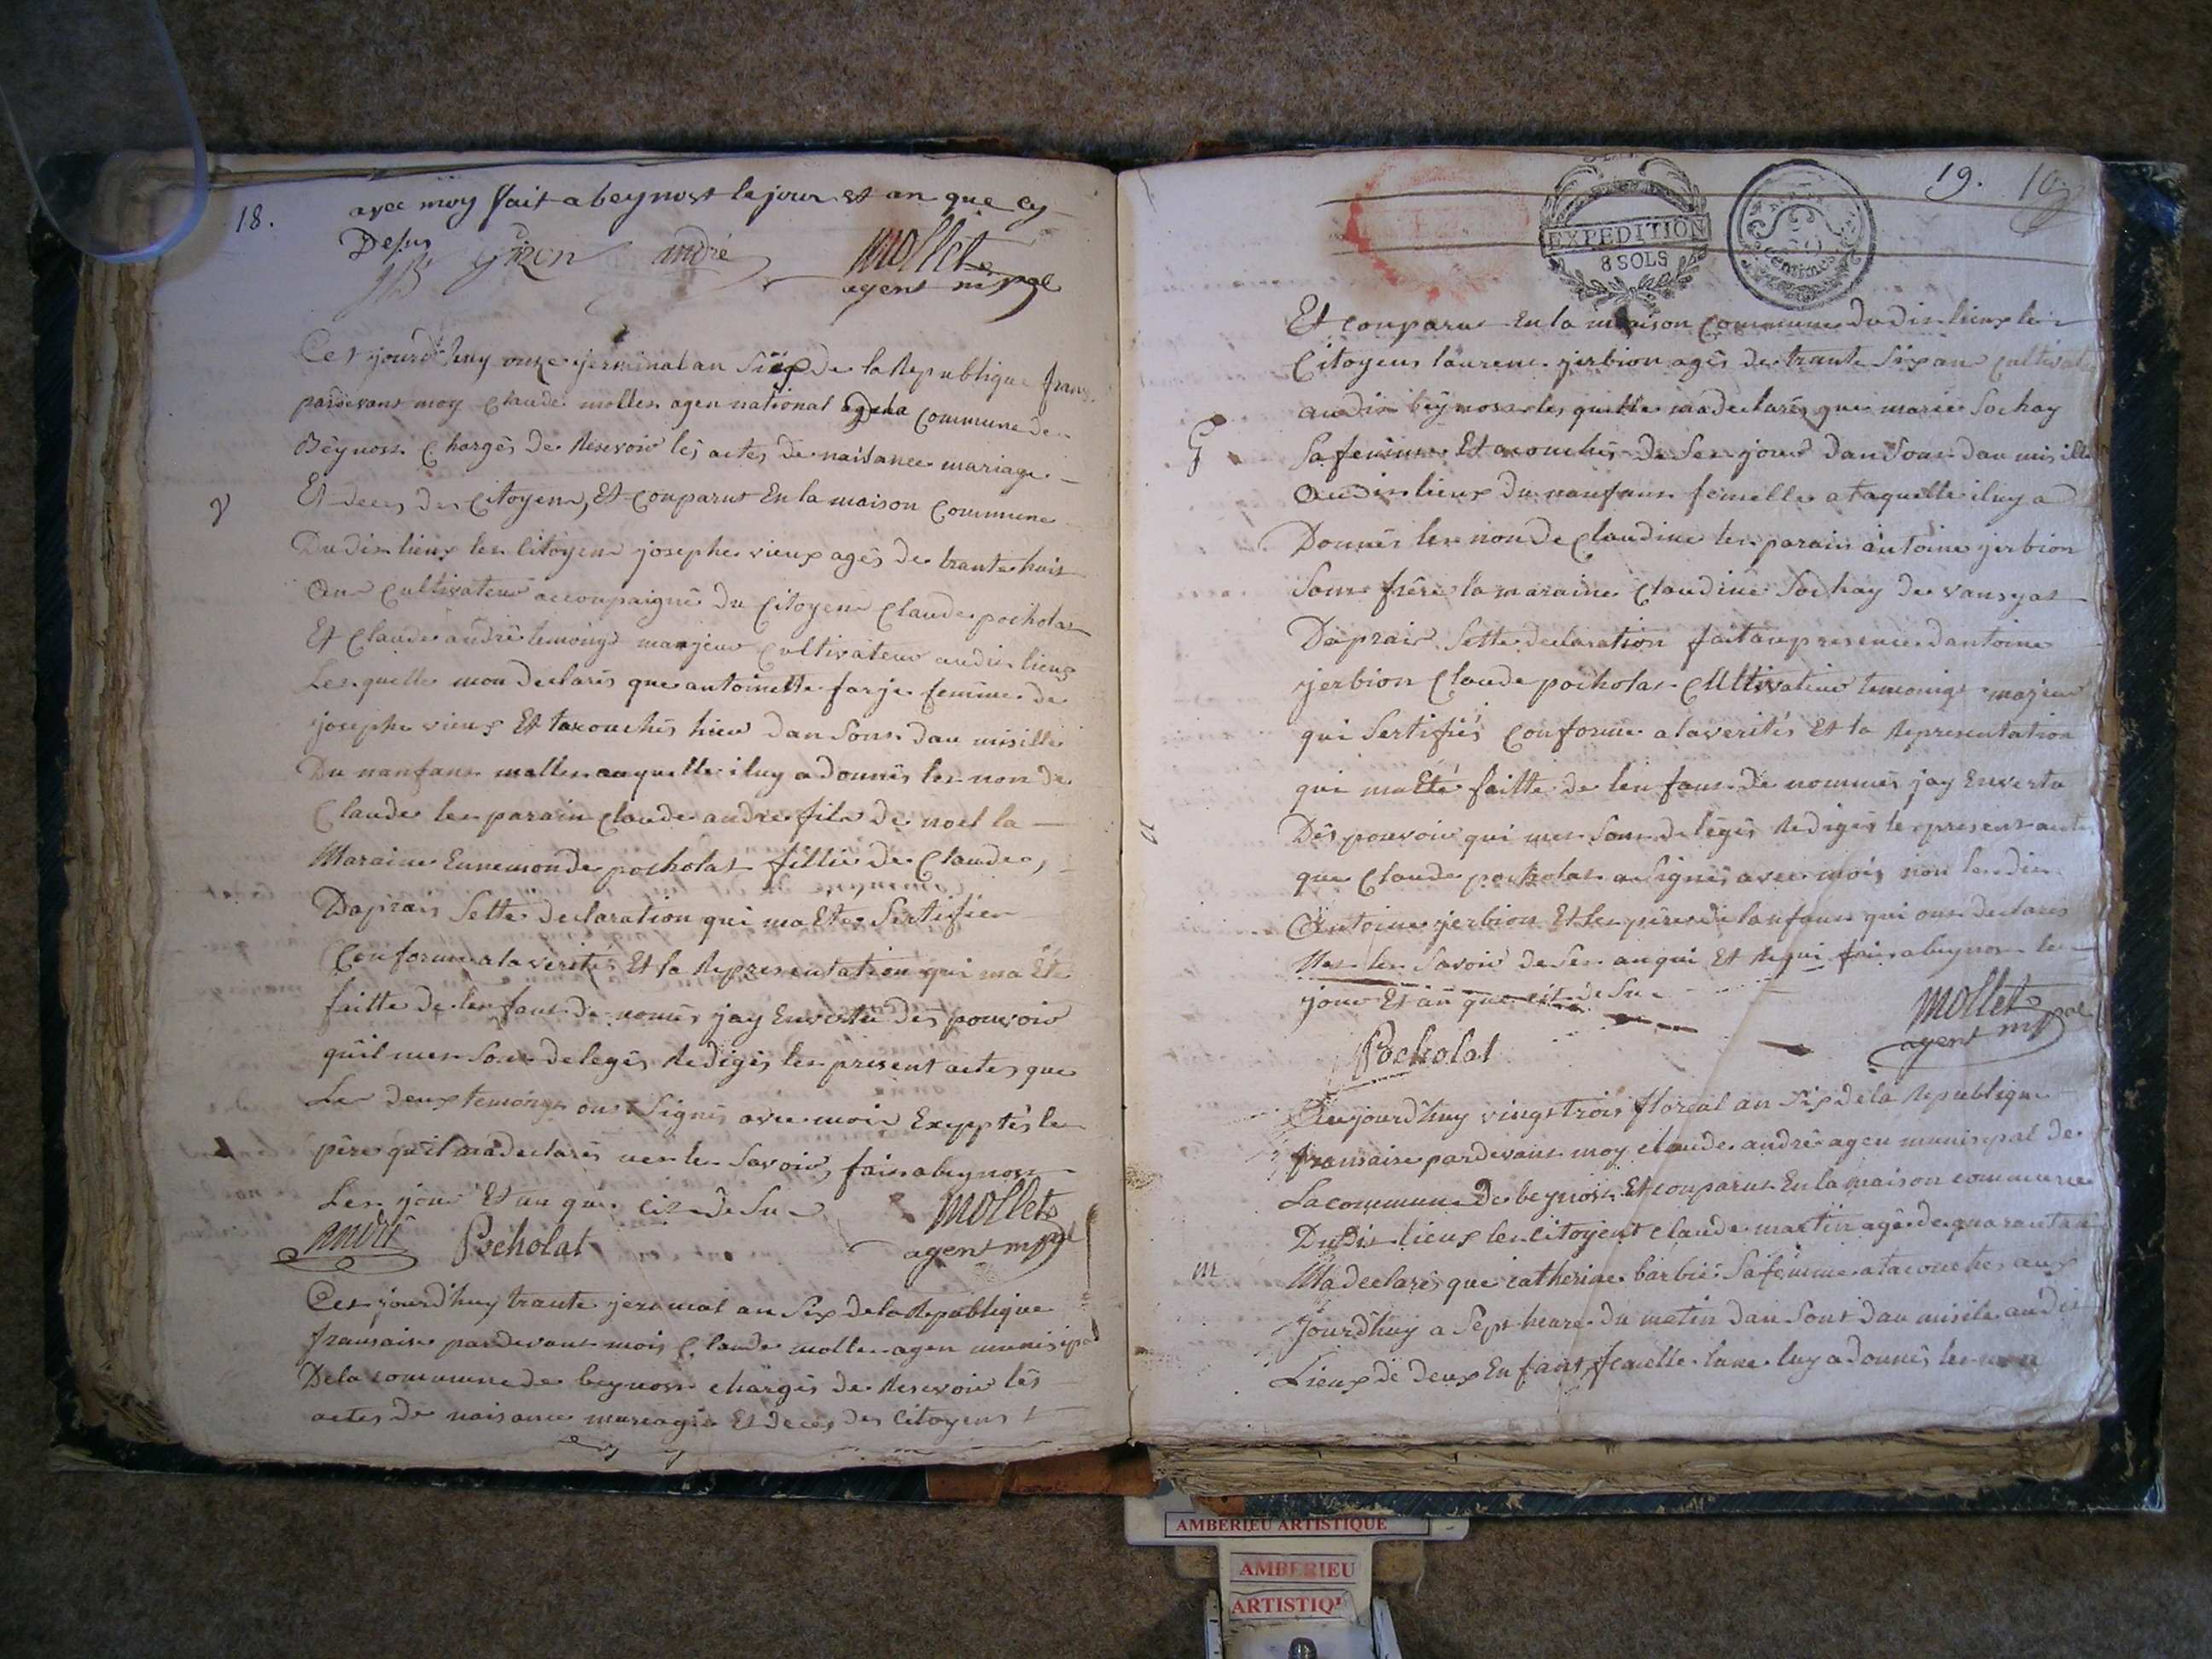 18.
avec moy fait a beynost le jour et an que cy
Desus
andré
mollet
agent mpal
Cet jourdhuy onze jerminal an Six de la Republique frans.
pardevant moy Claude mollet agen national de la Commune de
Beynost Chargés de Resevoir lés actes de naisance mariage
Et deces des Citoyens, Et Conparut En la maison Commune
Du dit lieux les Citoyens josephe vieux agés de trante huit
an Cultivateur acconpaigné du Citoyens Claude pocholat
Et Claude andré temoings marjeur Cultivateur audit lieux
Les quelle mon declarés que antoinette farje femme de
josephe vieux Et tacouchés hier dan Sont dau misille
Du nanfant malle auquelle iluy a donnés les non de
Claude les parain Claude andre fils de noel la
Maraine Ennemonde pocholat fillie de Claude,
Daprais Sette declaration qui ma Eté Sertifier
Conforme a la verités Et la Representation qui ma Eté
faitte de lenfant de només jay Envertu dés pouvoir
quil mes Sont delegés Redigés les present actes que
Les deux temoings ont Signés avec moi Exepptés le
père quil ma declarés nes les Savoir, fait a beynost
Les jour Et an que cit de Su
andré Pocholat
mollet
agent mpal
Cet jourdhuy trante jerminal an Six de la Republique
fransaise pardevant mois Claude mollet agen munisipal
De la commune de beynost chargés de Resevoir lés
actes de naisance mareage Et deces des Citoyens
19.
EXPEDITION
8 SOLS
centimes
Et conparut En la maison Commune du dit lieux les
Citoyens laurent jerbion agés de trante Six an Cultivat
au dit beynost les quelle ma declarés que marie Sochay
G
Sa femme Et acouchés de Ses jour dan Sont dau misille
audit lieux du nanfant femelle a laquelle iluy a
Donnés les non de Claudine les parain antoine jerbion
Sont frere la maraine Claudine Sochay de vansyat
Daprais Sette declaration fait an presence dantoine
jerbion Claude pocholat Cultivateur temoings majeur
qui Sertifiés Conforme a la verités Et la Representation
qui ma Eté faitte de lenfant de nommés jay Envertu
Dés pouvoir qui mes Sont delégés Redigés le present actes
que Claude pocholat a Signés avec mois non les dit
Antoine jerbion Et les pére de lanfant qui ont declares
les Savoir de Ses fait a beynost le
jour Et an que cit de Su
Pocholat
mollet
agent mpal
Cejourdhuy vingt trois floreal an Six de la Republique
fransaise pardevant moy claude andré agen munisipal de
La commune de beynost Et conparut En la maison commune
Du Dit lieux les Citoyent Claude martin agé de quarante
m
Ma declarés que catherine barbié Sa femme a tacouches aux
jourdhuy a Sept heure du matin dan Sont dau misile audit
Lieux de deux En fant femelle lune luy a donnés les non
AMBERIEU ARTISTIQUE
AMBERIEU
ARTISTIQU